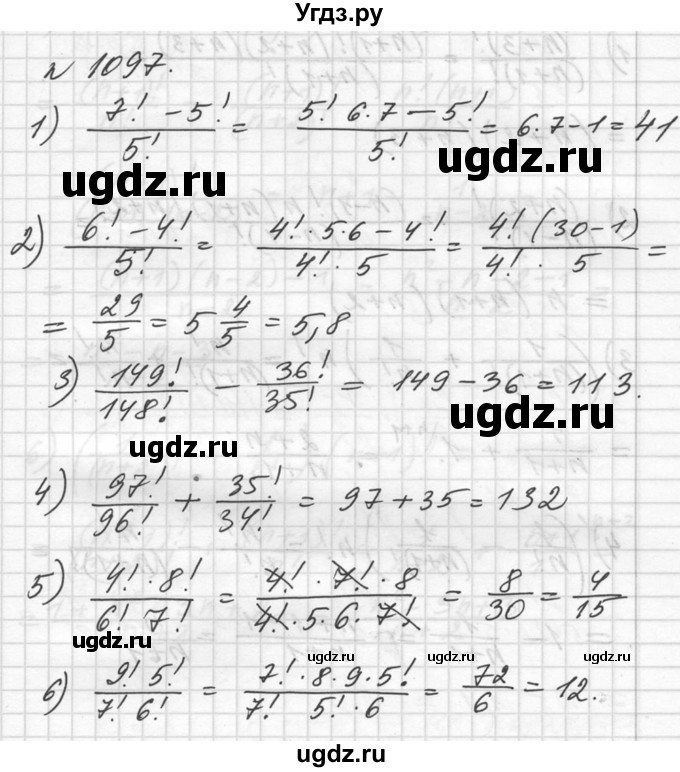 Угдз.ру
№ 1097.
1) (7! - 5!)/5! = (5! 6·7 - 5!)/5! = 6·7-1 = 41
ugdz.ru ugdz.ru
2) (6! - 4!)/5! = (4!·5·6 - 4!)/(4!·5) = (4! (30-1))/(4!·5) =
= 29/5 = 5 4/5 = 5,8
3) 149!/148! - 36!/35! = 149 - 36 = 113.
ugdz.ru ugdz.ru
4) 97!/96! + 35!/34! = 97 + 35 = 132
5) (4!·8!)/(6! 7!) = (4!·7!·8)/(4!·5·6·7!) = 8/30 = 4/15
ugdz.ru ugdz.ru ugdz.ru ugdz.ru
6) (9! 5!)/(7! 6!) = (7!·8·9·5!)/(7! 5!·6) = 72/6 = 12.
ugdz.ru